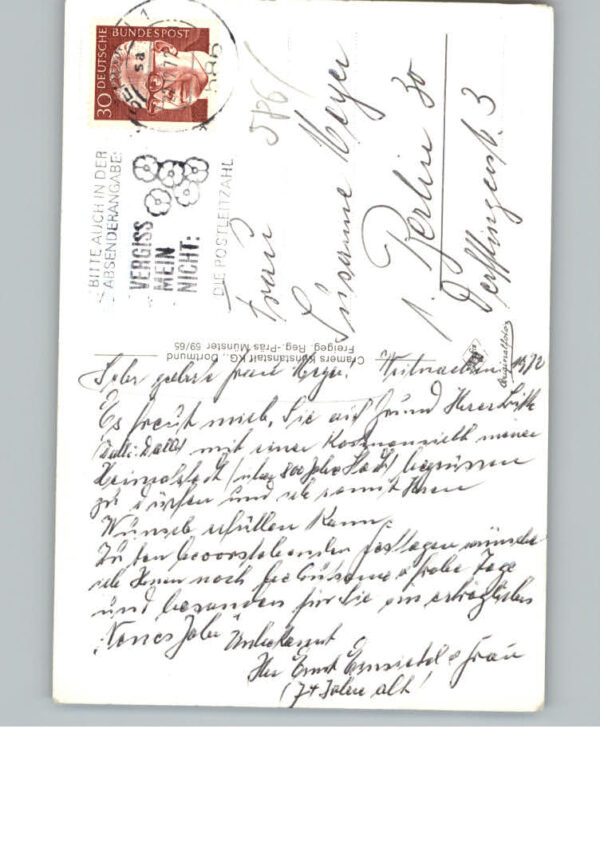 30 DEUTSCHE BUNDESPOST
586
BITTE AUCH IN DER
ABSENDERANGABE:
VERGISS
MEIN
NICHT:
DIE POSTLEITZAHL
586/
Frau
Susanne Meyer
1. Berlin 30
Derfflingerstr. 3
Cramers Kunstanstalt KG., Dortmund
Freigeg. Reg.-Präs Münster 59/65
Originalfoto
Sehr geehrte Frau Meyer! 1972
Es freut mich, Sie auf Grund Ihrer Bitte
mit einer Kartenansicht meiner
Heimatstadt (über 800 Jahre Stadt) begrüssen
zu dürfen und ich somit Ihren
Wunsch erfüllen kann.
Zu den bevorstehenden Festtagen wünsche
ich Ihnen noch frohe Tage
und besonders für Sie ein erträgliches
"Neues Jahr" Unbekannt
Ihr Ernst & Frau
(74 Jahre alt!